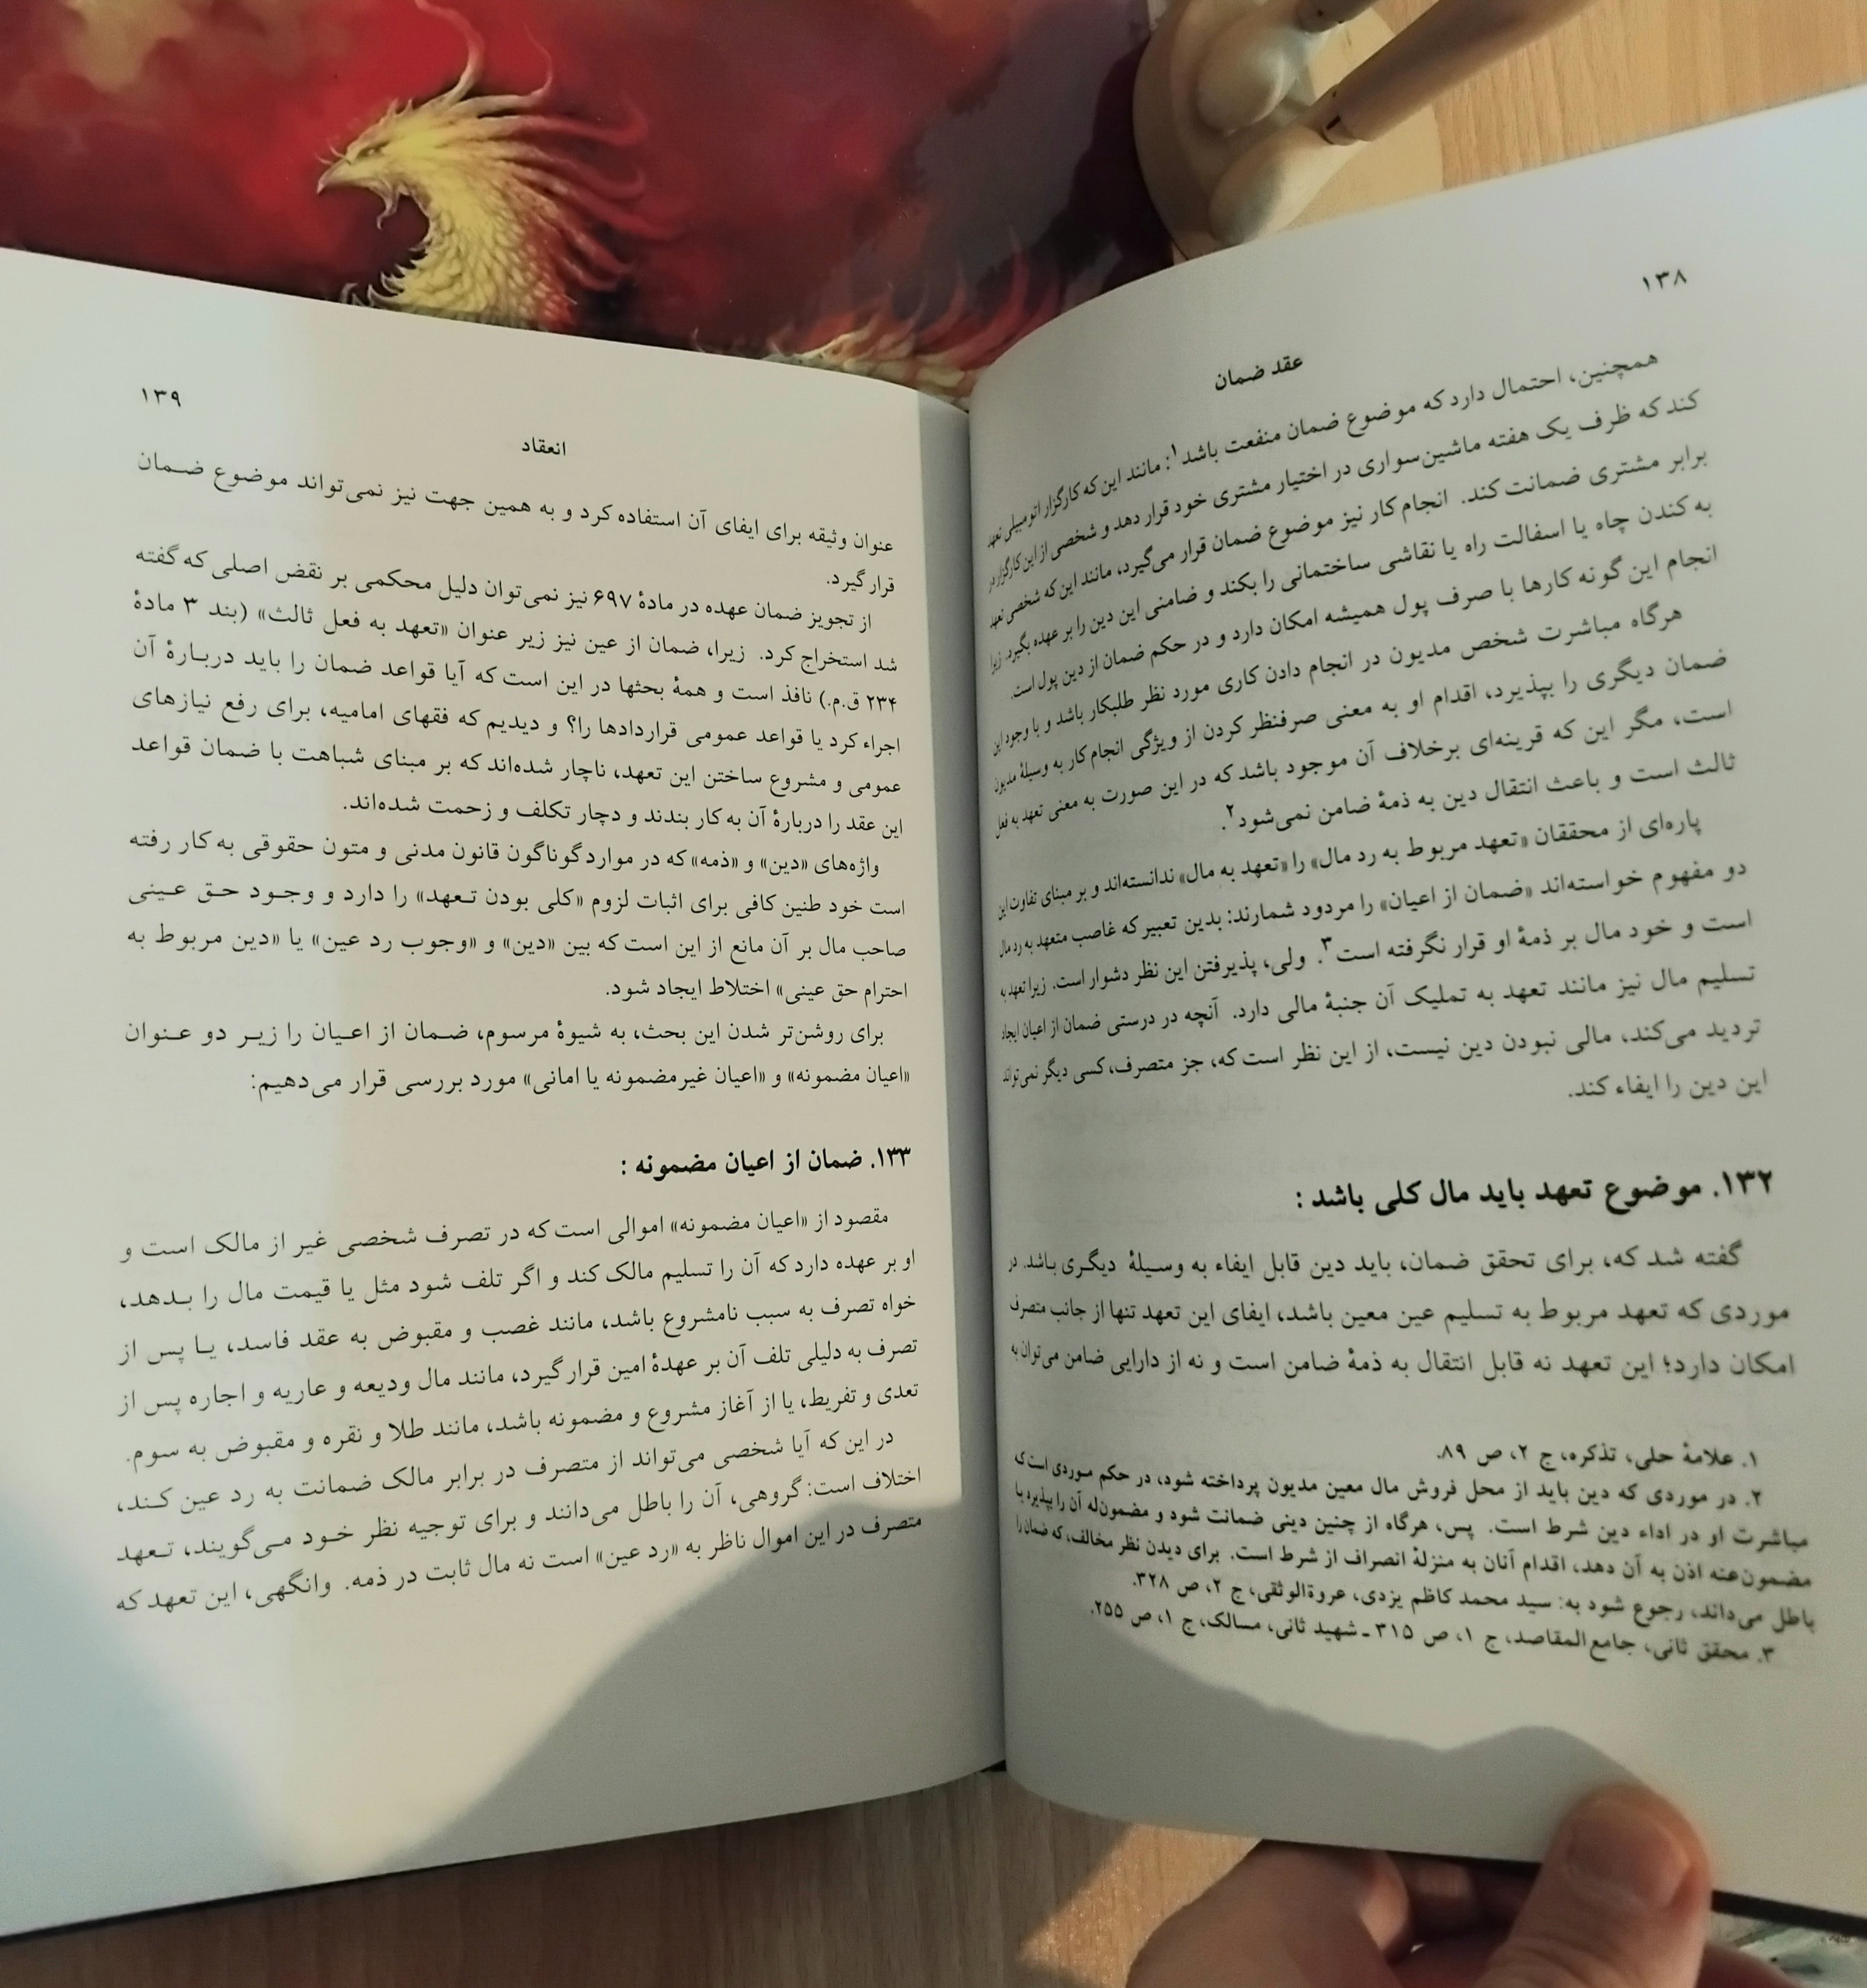 ۱۳۸
عقد ضمان
همچنین، احتمال دارد که موضوع ضمان منفعت باشد۱: مانند این که کارگزار اتومبیلی تعهد
کند که ظرف یک هفته ماشین‌سواری در اختیار مشتری خود قرار دهد و شخصی از این کارگزار در
برابر مشتری ضمانت کند. انجام کار نیز موضوع ضمان قرار می‌گیرد، مانند این که شخصی تعهد
به کندن چاه یا اسفالت راه یا نقاشی ساختمانی را بکند و ضامنی این دین را بر عهده بگیرد. زیرا
انجام این گونه کارها با صرف پول همیشه امکان دارد و در حکم ضمان از دین پول است.
هرگاه مباشرت شخص مدیون در انجام دادن کاری مورد نظر طلبکار باشد و با وجود این
ضمان دیگری را بپذیرد، اقدام او به معنی صرفنظر کردن از ویژگی انجام کار به وسیلهٔ مدیون
است، مگر این که قرینه‌ای برخلاف آن موجود باشد که در این صورت به معنی تعهد به فعل
ثالث است و باعث انتقال دین به ذمهٔ ضامن نمی‌شود۲.
پاره‌ای از محققان «تعهد مربوط به رد مال» را «تعهد به مال» ندانسته‌اند و بر مبنای تفاوت این
دو مفهوم خواسته‌اند «ضمان از اعیان» را مردود شمارند: بدین تعبیر که غاصب متعهد به رد مال
است و خود مال بر ذمهٔ او قرار نگرفته است۳. ولی، پذیرفتن این نظر دشوار است. زیرا تعهد به
تسلیم مال نیز مانند تعهد به تملیک آن جنبهٔ مالی دارد. آنچه در درستی ضمان از اعیان ایجاد
تردید می‌کند، مالی نبودن دین نیست، از این نظر است که، جز متصرف، کسی دیگر نمی‌تواند
این دین را ایفاء کند.
۱۳۲. موضوع تعهد باید مال کلی باشد :
گفته شد که، برای تحقق ضمان، باید دین قابل ایفاء به وسیلهٔ دیگری باشد. در
موردی که تعهد مربوط به تسلیم عین معین باشد، ایفای این تعهد تنها از جانب متصرف
امکان دارد؛ این تعهد نه قابل انتقال به ذمهٔ ضامن است و نه از دارایی ضامن می‌توان به
۱. علامهٔ حلی، تذکره، ج ۲، ص ۸۹.
۲. در موردی که دین باید از محل فروش مال معین مدیون پرداخته شود، در حکم موردی است که
مباشرت او در اداء دین شرط است. پس، هرگاه از چنین دینی ضمانت شود و مضمون‌له آن را بپذیرد یا
مضمون‌عنه اذن به آن دهد، اقدام آنان به منزلهٔ انصراف از شرط است. برای دیدن نظر مخالف، که ضمان را
باطل می‌داند، رجوع شود به: سید محمد کاظم یزدی، عروةالوثقی، ج ۲، ص ۳۲۸.
۳. محقق ثانی، جامع‌المقاصد، ج ۱، ص ۳۱۵ ـ شهید ثانی، مسالک، ج ۱، ص ۲۵۵.
۱۳۹
انعقاد
عنوان وثیقه برای ایفای آن استفاده کرد و به همین جهت نیز نمی‌تواند موضوع ضـمان
قرار گیرد.
از تجویز ضمان عهده در مادهٔ ۶۹۷ نیز نمی‌توان دلیل محکمی بر نقض اصلی که گفته
شد استخراج کرد. زیرا، ضمان از عین نیز زیر عنوان «تعهد به فعل ثالث» (بند ۳ مادهٔ
۲۳۴ ق.م.) نافذ است و همهٔ بحثها در این است که آیا قواعد ضمان را باید دربـارهٔ آن
اجراء کرد یا قواعد عمومی قراردادها را؟ و دیدیم که فقهای امامیه، برای رفع نیازهای
عمومی و مشروع ساختن این تعهد، ناچار شده‌اند که بر مبنای شباهت با ضمان قواعد
این عقد را دربارهٔ آن به کار بندند و دچار تکلف و زحمت شده‌اند.
واژه‌های «دین» و «ذمه» که در موارد گوناگون قانون مدنی و متون حقوقی به کار رفته
است خود طنین کافی برای اثبات لزوم «کلی بودن تـعهد» را دارد و وجـود حـق عـینی
صاحب مال بر آن مانع از این است که بین «دین» و «وجوب رد عین» یا «دین مربوط به
احترام حق عینی» اختلاط ایجاد شود.
برای روشن‌تر شدن این بحث، به شیوهٔ مرسوم، ضـمان از اعـیان را زیـر دو عـنوان
«اعیان مضمونه» و «اعیان غیرمضمونه یا امانی» مورد بررسی قرار می‌دهیم:
۱۳۳. ضمان از اعیان مضمونه :
مقصود از «اعیان مضمونه» اموالی است که در تصرف شخصی غیر از مالک است و
او بر عهده دارد که آن را تسلیم مالک کند و اگر تلف شود مثل یا قیمت مال را بـدهد،
خواه تصرف به سبب نامشروع باشد، مانند غصب و مقبوض به عقد فاسد، یـا پس از
تصرف به دلیلی تلف آن بر عهدهٔ امین قرار گیرد، مانند مال ودیعه و عاریه و اجاره پس از
تعدی و تفریط، یا از آغاز مشروع و مضمونه باشد، مانند طلا و نقره و مقبوض به سوم.
در این که آیا شخصی می‌تواند از متصرف در برابر مالک ضمانت به رد عین کـند،
اختلاف است: گروهی، آن را باطل می‌دانند و برای توجیه نظر خـود مـی‌گویند، تـعهد
متصرف در این اموال ناظر به «رد عین» است نه مال ثابت در ذمه. وانگهی، این تعهد که